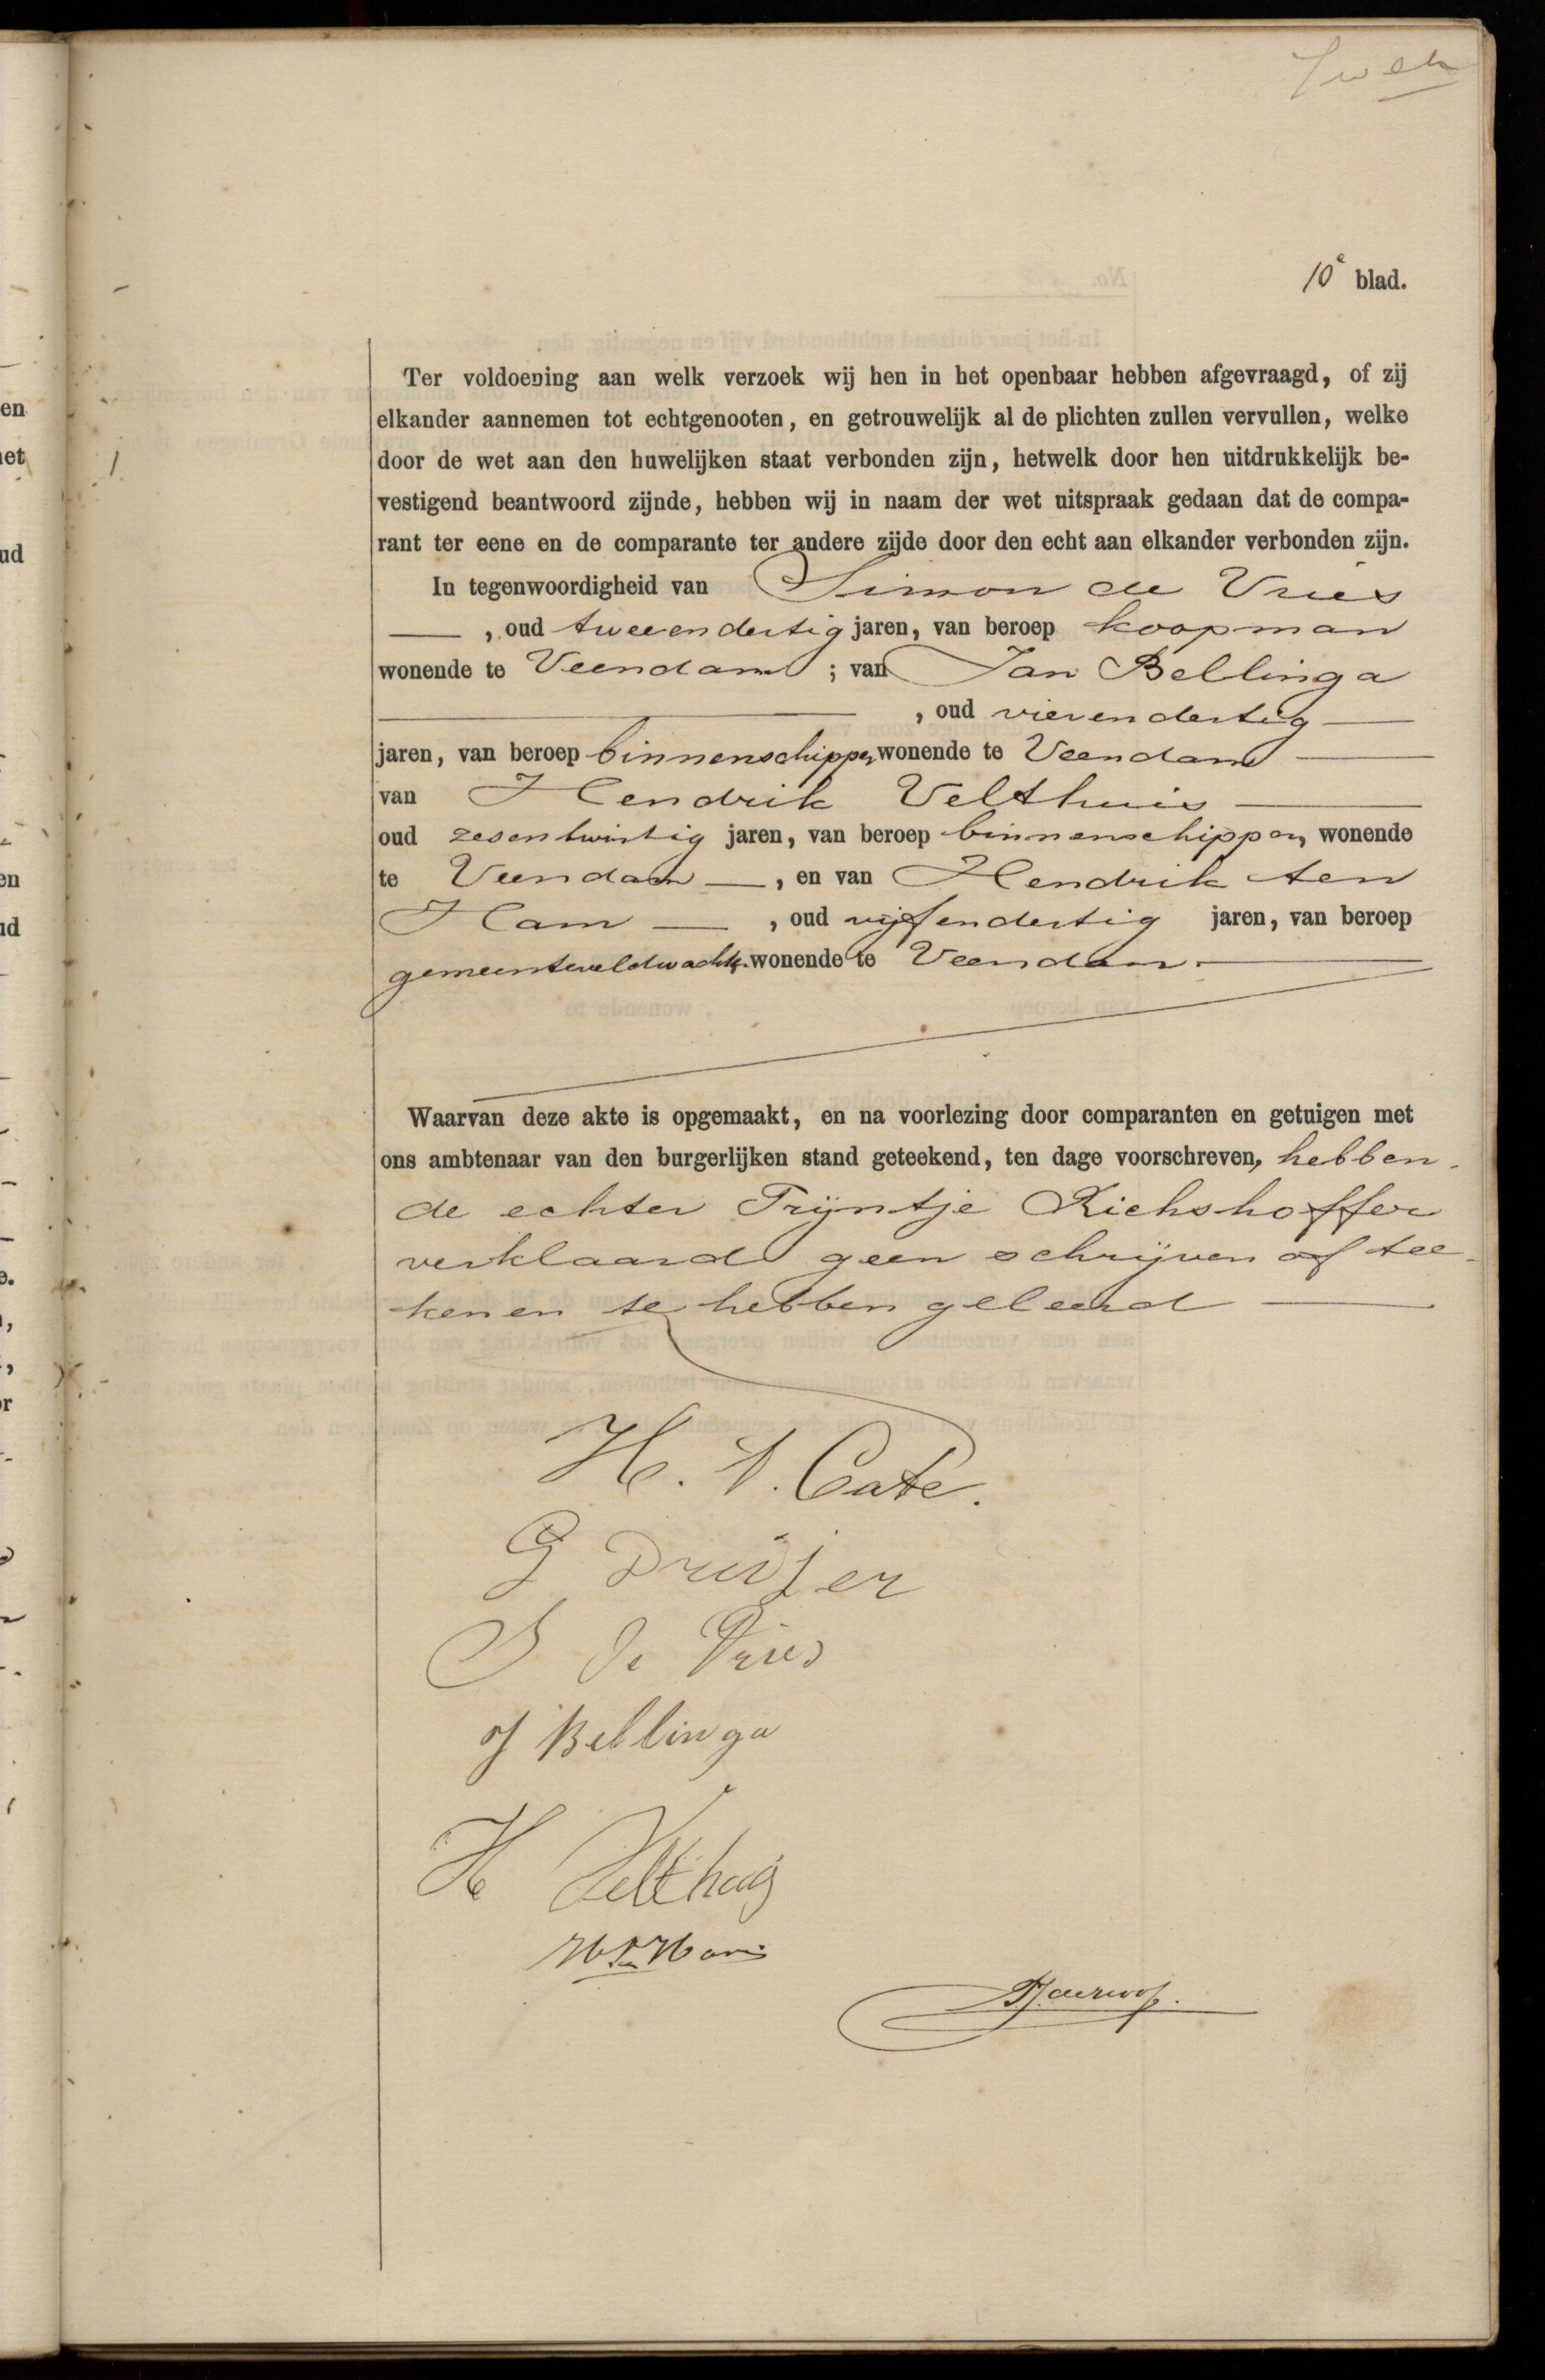 10e blad.
Ter voldoening aan welk verzoek wij hen in het openbaar hebben afgevraagd, of zij
elkander aannemen tot echtgenooten, en getrouwelijk al de plichten zullen vervullen, welke
door de wet aan den huwelijken staat verbonden zijn, hetwelk door hen uitdrukkelijk be-
vestigend beantwoord zijnde, hebben wij in naam der wet uitspraak gedaan dat de compa-
rant ter eene en de comparante ter andere zijde door den echt aan elkander verbonden zijn.
In tegenwoordigheid van Simon de Vries
, oud tweeendertig jaren, van beroep koopman
wonende te Veendam ; van Jan Bellinga
, oud vierendertig
jaren, van beroep binnenschipper, wonende te Veendam
van Hendrik Velthuis
oud zesentwintig jaren, van beroep binnenschipper, wonende
te Veendam , en van Hendrik ten
Ham , oud vijfendertig jaren, van beroep
gemeenteveldwachter wonende te Veendam.
Waarvan deze akte is opgemaakt, en na voorlezing door comparanten en getuigen met
ons ambtenaar van den burgerlijken stand geteekend, ten dage voorschreven, hebben-
de echter Trijntje Richshoffer
verklaard geen schrijven of tee-
kenen te hebben geleerd
H. t. Cate.
G Druijer
S de Vries
J Bellinga
H Velthuis
H ten Ham